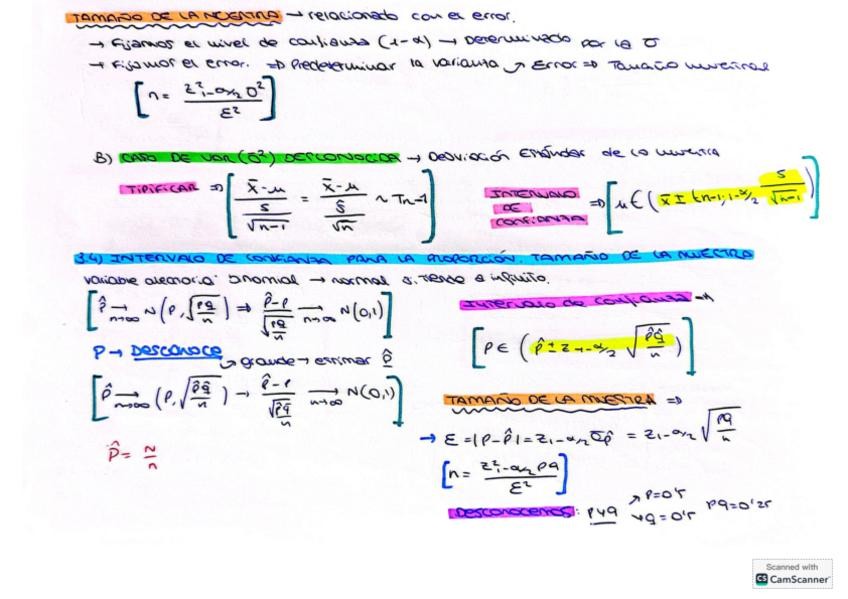 TAMAÑO DE LA MUESTRA → relacionado con el error.
→ Fijamos el nivel de confianza (1-α) → Determinado por la σ
→ Fijamos el error. ⇒ Predeterminar la varianza ↗ Error ⇒ Tamaño muestral
[n = z²₁₋α/₂ σ² / ε²]
B) CASO DE VAR (σ²) DESCONOCIDA → Desviación Estándar de la muestra
TIPIFICAR ⇒ [(x̄-μ)/(s/√(n-1)) = (x̄-μ)/(ŝ/√n) ~ Tn-1]
INTERVALO DE CONFIANZA ⇒ [μ ∈ (x̄ ± tn-1; 1-α/2 s/√(n-1))]
3.4) INTERVALO DE CONFIANZA PARA LA PROPORCIÓN. TAMAÑO DE LA MUESTRA
variable aleatoria: binomial → normal si tiende a infinito.
[p̂ →n→∞ N(p, √(pq/n)) ⇒ (p̂-p)/√(pq/n) →n→∞ N(0,1)]
P → DESCONOCE
↘ grande → estimar p̂
[p̂ →n→∞ (p, √(p̂q̂/n)) → (p̂-p)/√(p̂q̂/n) →n→∞ N(0,1)]
p̂ = N/n
Intervalo de confianza →
[p ∈ (p̂ ± z₁₋α/₂ √(p̂q̂/n))]
TAMAÑO DE LA MUESTRA ⇒
→ ε = |p-p̂| = z₁₋α/₂ σp̂ = z₁₋α/₂ √(pq/n)
[n = z²₁₋α/₂ pq / ε²]
DESCONOCEMOS: p y q ↗ p=0'5 ↘ q=0'5 pq=0'25
Scanned with
CS CamScanner